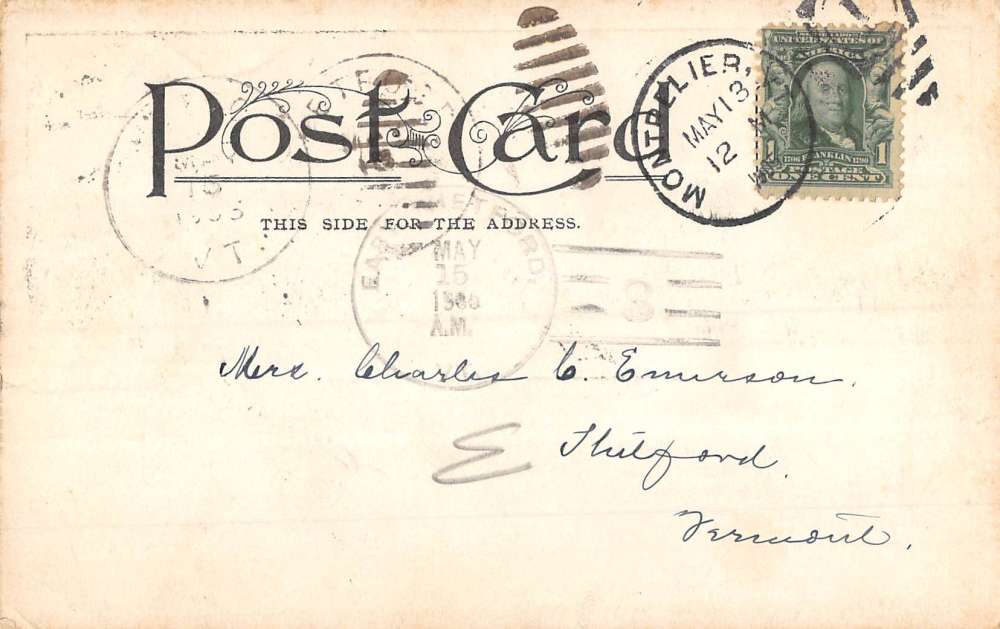 Post Card
THIS SIDE FOR THE ADDRESS.
MONTPELIER,
MAY 13
12
UNITED STATES OF
AMERICA
1 1706 FRANKLIN 1790 1
POSTAGE
ONE CENT
15
VT.
EAST
FORD,
MAY
15
A.M.
8
Mrs. Charles C. Emerson.
E
Thetford.
Vermont.